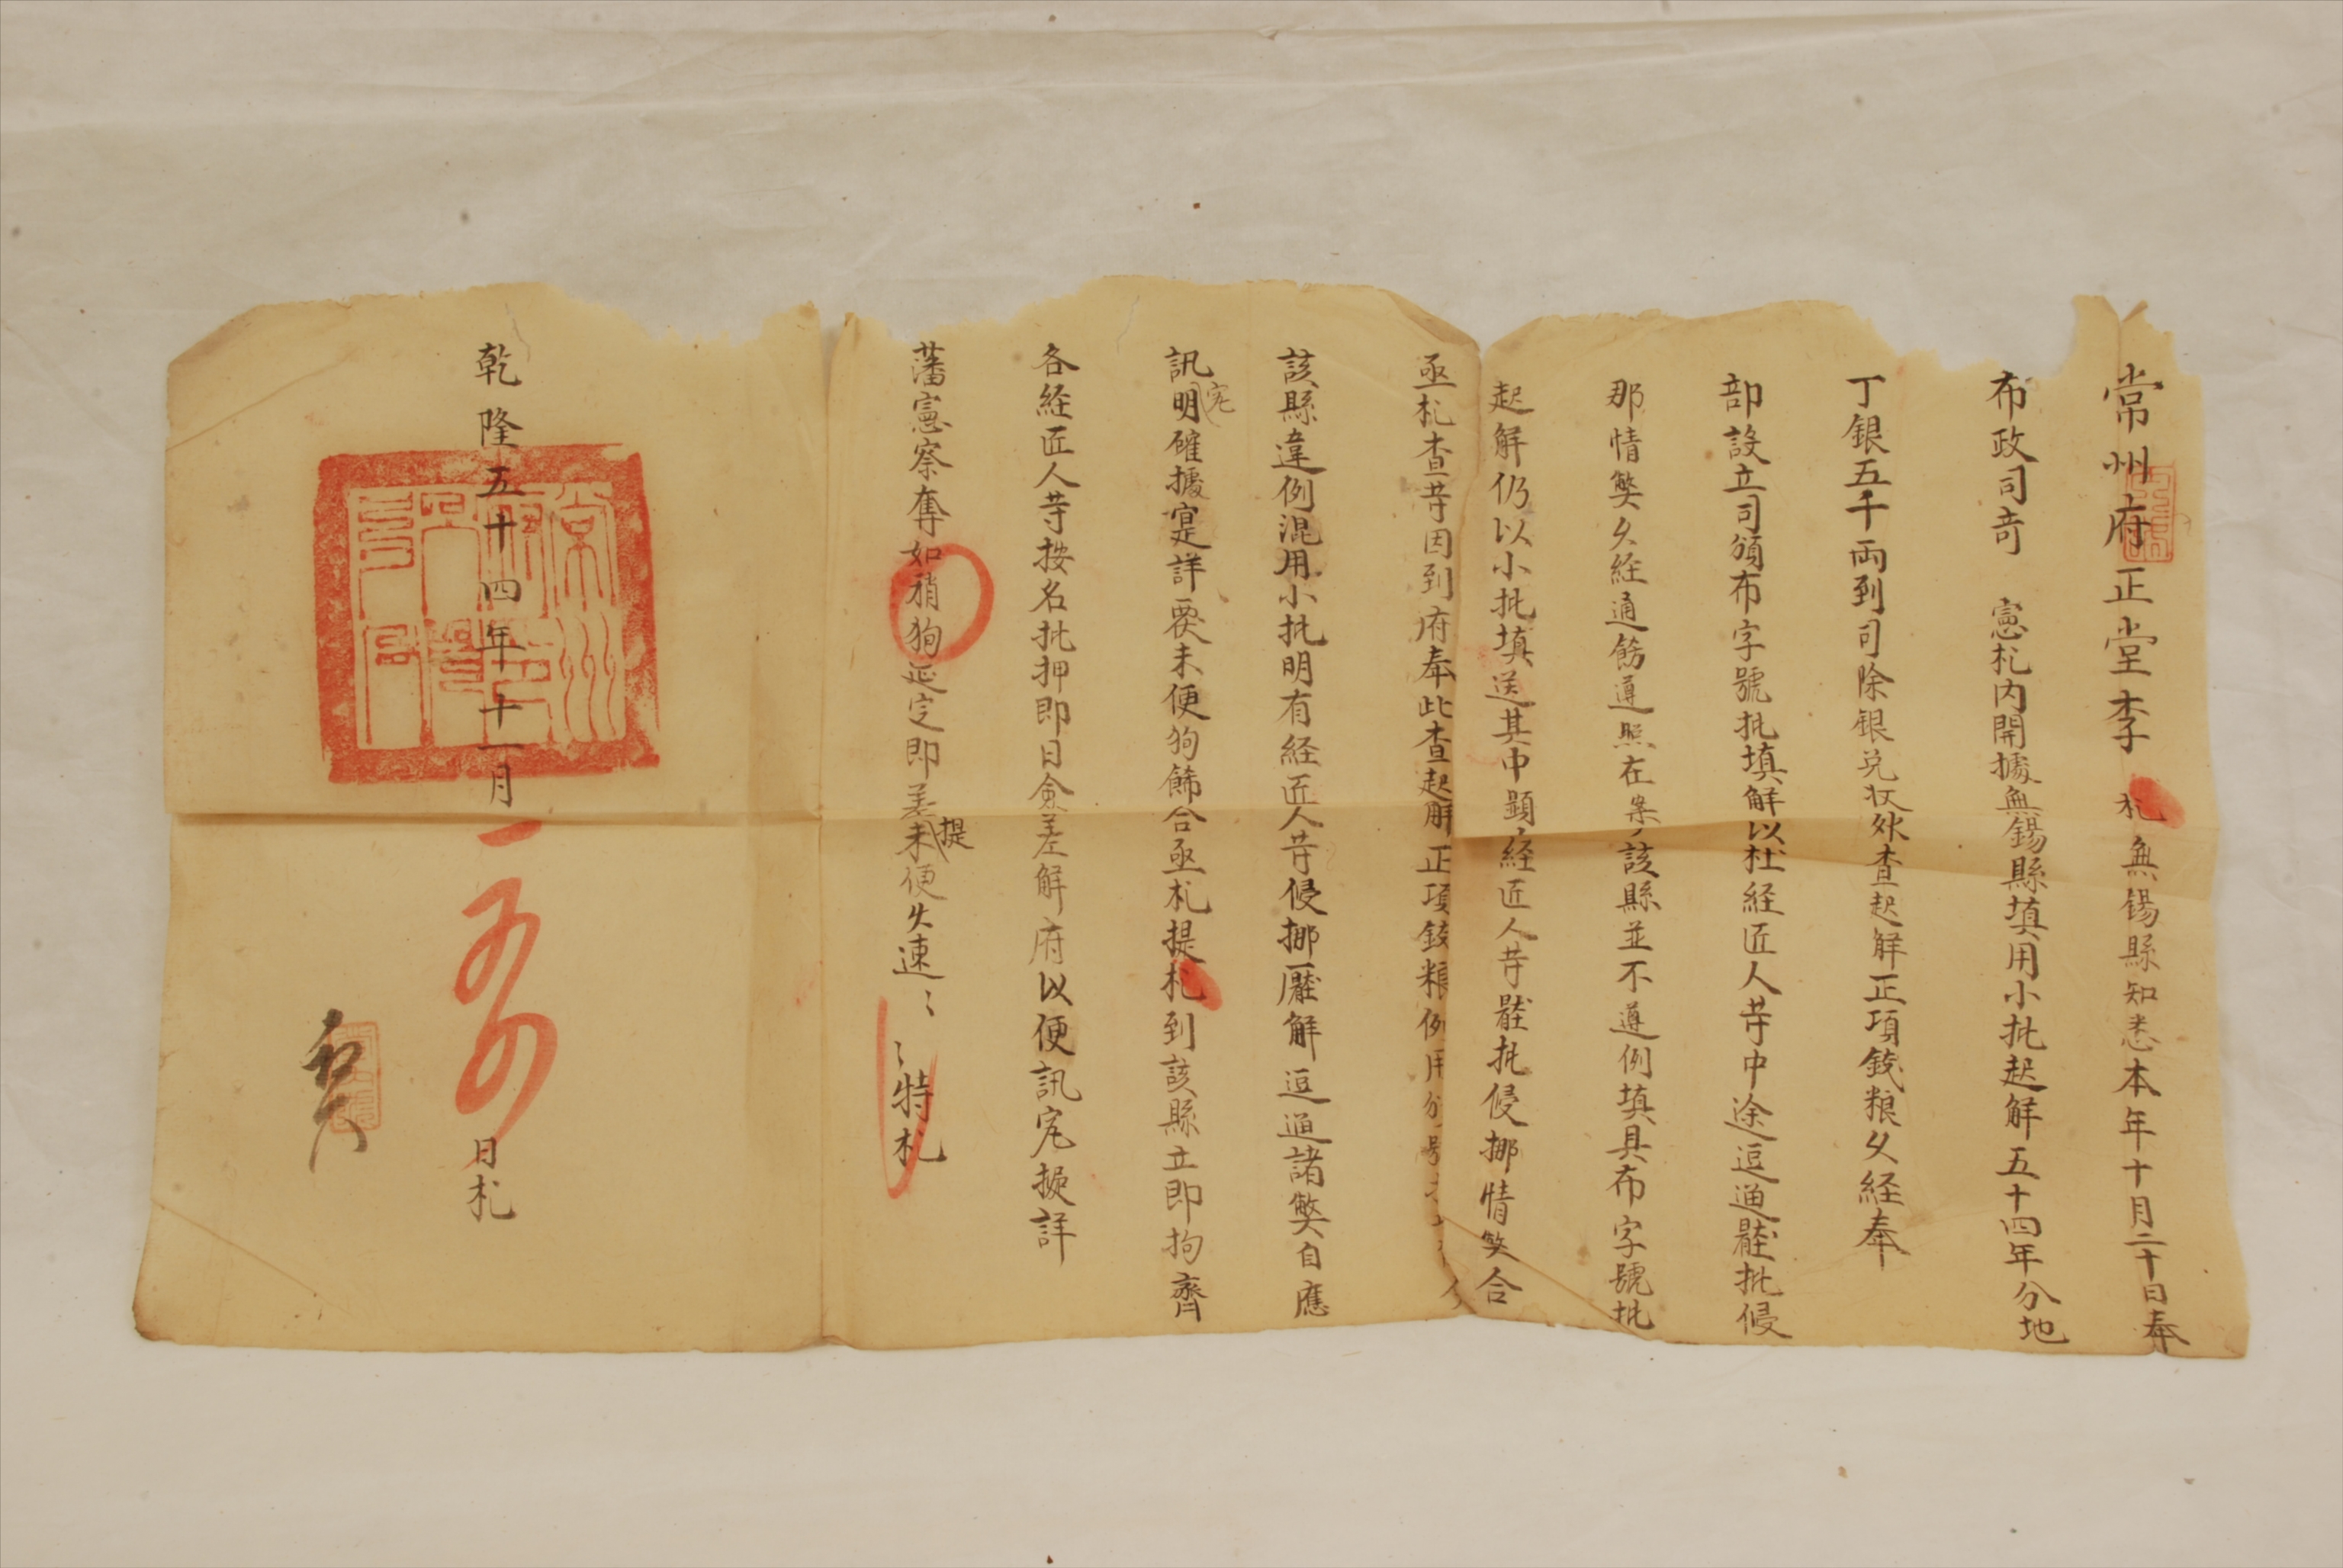 常州府正堂李 札無錫縣知悉本年十月二十日奉
布政司奇 憲札内開據無錫縣填用小批起解五十四年分地
丁銀五千両到司除銀兑收外查起解正項錢粮久経奉
部設立司頒布字號批填解以杜経匠人䓁中途逗遛罷批侵
那情獘久経通飭遵照在案該縣並不遵例填具布字號批
起解仍以小批填送其中顕経匠人䓁批侵挪情獘合
亟札查䓁因到府奉此查起解正項錢粮例用
該縣違例混用小批明有経匠人䓁侵挪解逗遛諸獘自應
訊究明確據寔詳覆未便狥飾合亟札提札到該縣立即拘齊
各経匠人䓁按名批押即日僉差解府以便訊究擬詳
藩憲察奪如稍狥延定即差提未便火速〻〻特札
乾隆五十四年十一月 日札
常州府印